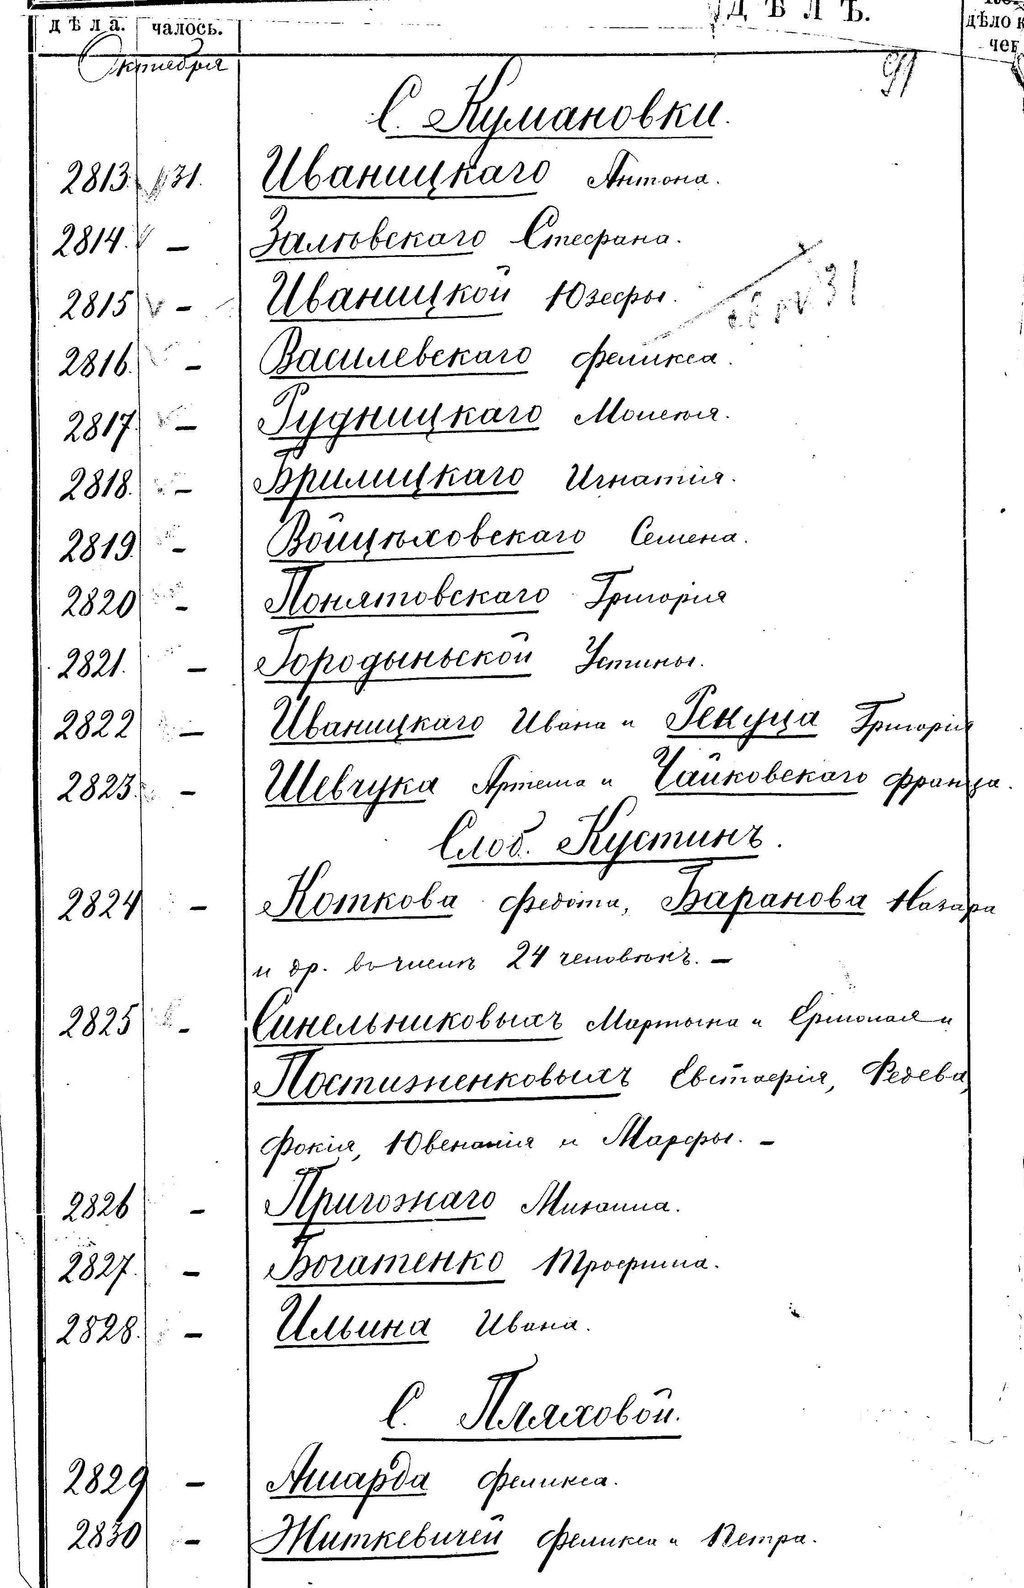 дѣла. чалось. ДѢЛЪ. дѣло к
чег
Октября 91
С. Кумановки.
2813. 31. Иваницкаго Антона.
2814. — Залѣвскаго Стефана.
2815 — Иваницкой Юзефы. 31
2816. — Василевскаго Феликса.
2817. — Рудницкаго Моисея.
2818. — Брилицкаго Игнатія.
2819. — Войцѣховскаго Семена.
2820 — Понятовскаго Григорія
2821. — Городыньской Устины.
2822 — Иваницкаго Ивана и Рекуца Григорія
2823. — Шевчука Артема и Чайковскаго Франца.
Слоб. Кустинъ.
2824 — Коткова Федота, Баранова Назара
и др. въ числѣ 24 человѣкъ. —
2825 — Синельниковыхъ Мартына и Ермолая и
Постиженковыхъ Евстафія, Федева,
Фокія, Ювеналія и Марфы. —
2826 — Пригожаго Михаила.
2827. — Богатенко Трофима.
2828. — Ильина Ивана.
С. Пляховой.
2829 — Ашарда Феликса.
2830 — Житкевичей Феликса и Петра.